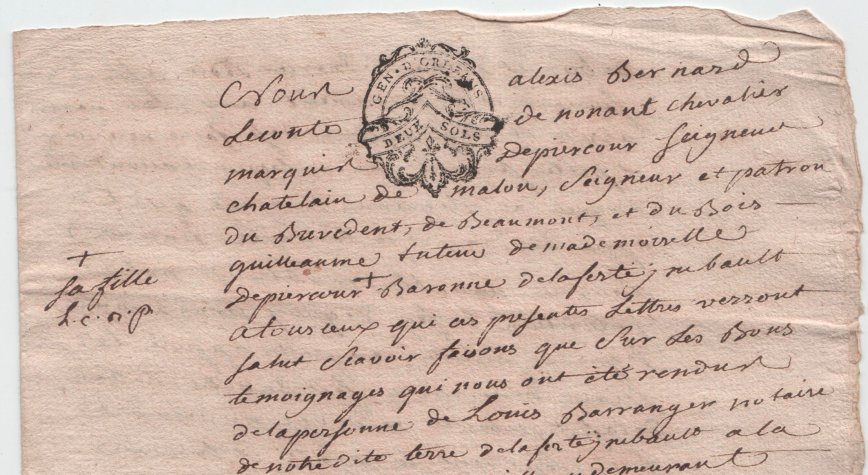 GEN · D'ORLEANS
DEUX SOLS
Nous alexis Bernard
Leconte de nonant chevalier
marquis Depiercour Seigneur
chatelain de malou, Seigneur et patron
du Brevedent, de Beaumont, et du Bois
guilleaume tuteur de mademoiselle
depiercour + Baronne delaferté jmbault
+
sa fille
L. c. n. p
atous ceux qui ces presentes Lettres verront
salut Scavoir faisons que Sur Les Bons
temoignages qui nous ont été rendus
delapersonne de Louis Barranger notaire
de notre dite terre delaferté jmbault a la
demeurant